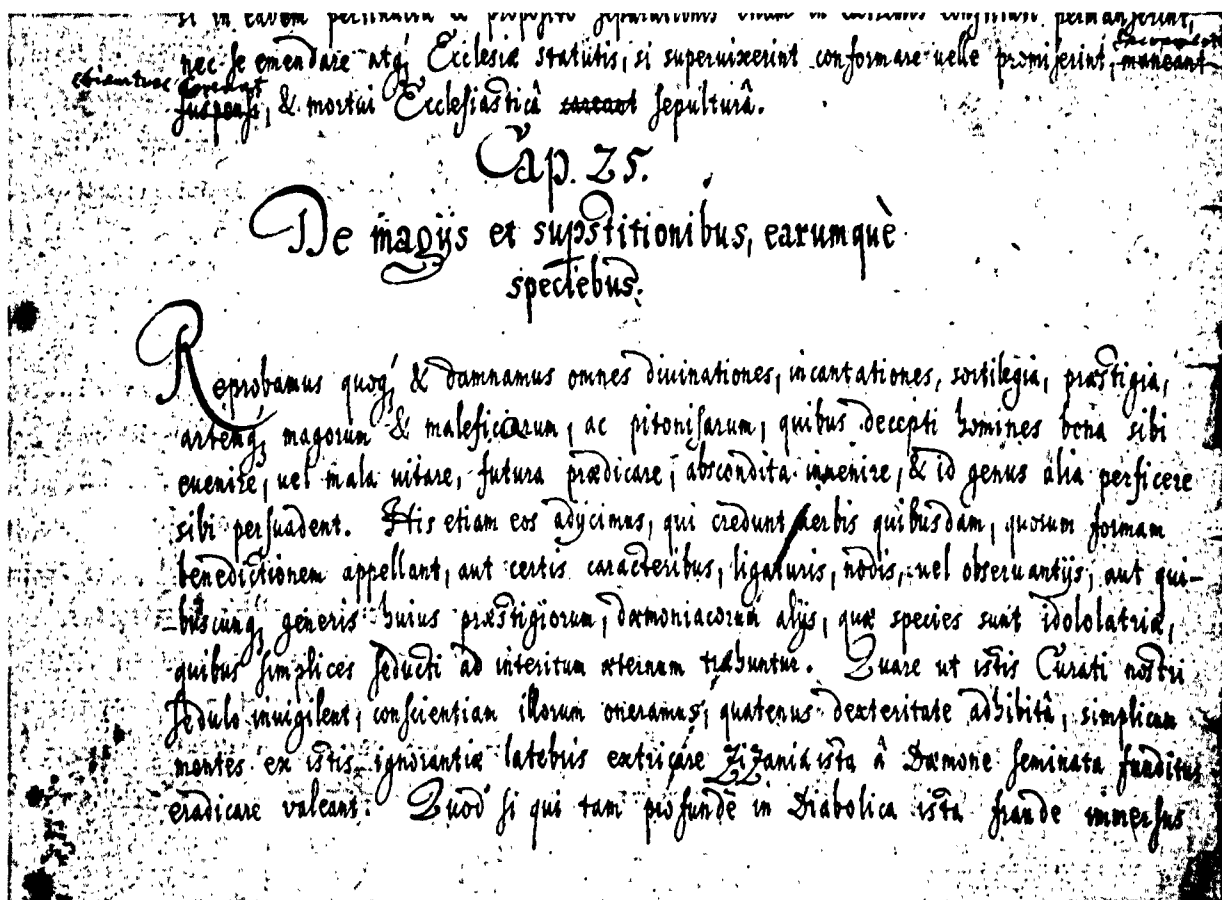 si in eadem pertinacia & proposito separationis etiam in extremis constituti permanserint,
nec se emendare atq; Ecclesiæ statutis, si supervixerint conformare uelle promiserint, maneant
suspensi, & mortui Ecclesiasticâ careant sepulturâ.
Cap. 25.
De magijs et supstitionibus, earumquè
speciebus.
Reprobamus quoq; & damnamus omnes divinationes, incantationes, sortilegia, præstigia,
artemq; magorum & maleficarum, ac pitonisarum, quibus decepti homines bona sibi
euenire, uel mala uitare, futura prædicare, abscondita inuenire, & id genus alia perficere
sibi persuadent. His etiam eos adijcimus, qui credunt uerbis quibusdam, quorum formam
benedictionem appellant, aut certis caracteribus, ligaturis, nodis, uel obseruantijs, aut qui-
buscunq; generis huius præstigiorum, dæmoniacorum alijs, quæ species sunt idololatriæ,
quibus simplices seducti ad interitum æternum trahuntur. Quare ut istis Curati nostri
sedulo inuigilent, conscientiam illorum oneramus, quatenus dexteritate adhibitâ, simplicum
mentes ex istis ignorantiæ latebris extricare Zizania ista â Dæmone seminata funditus
eradicare valeant. Quod si qui tam profundè in Diabolica ista fraude immersus